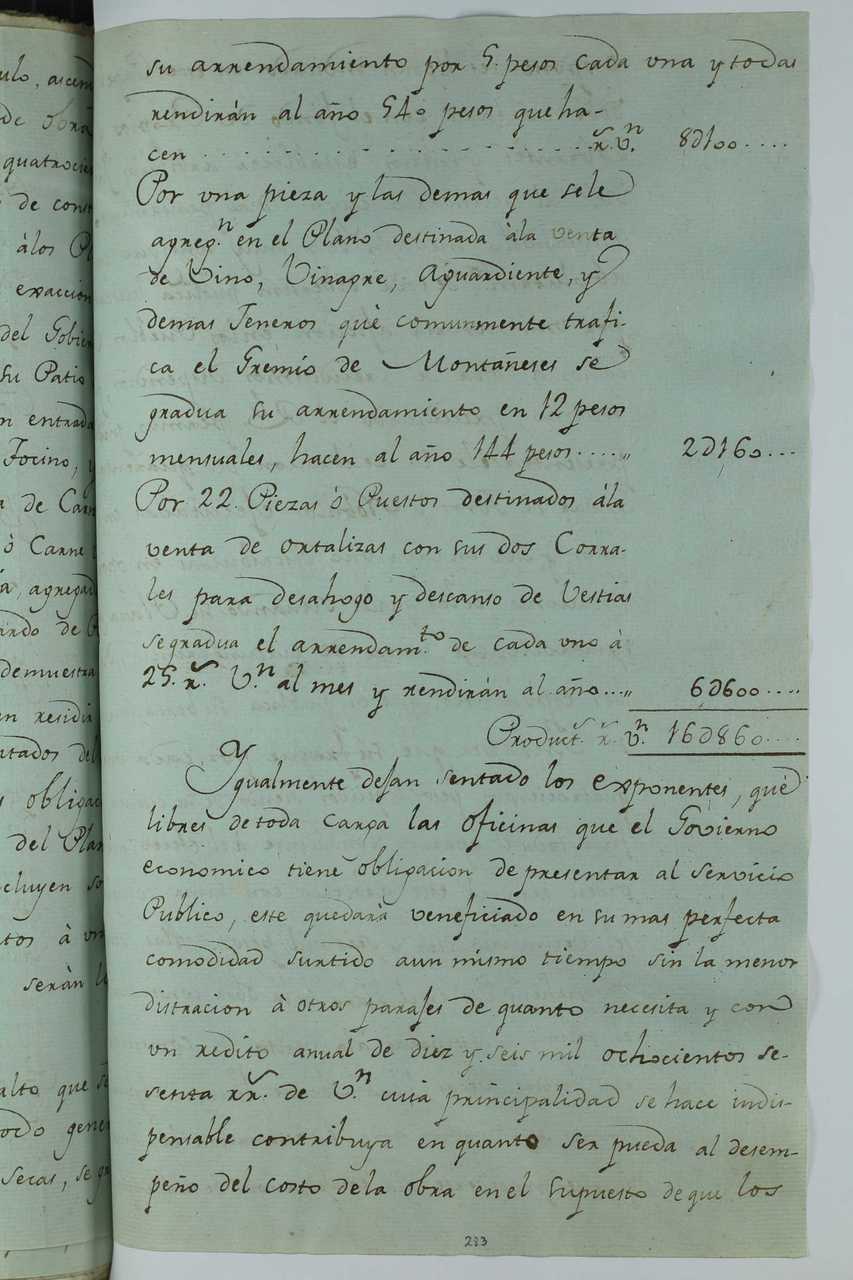 su arrendamiento por 5. pesos cada una y todas
rendirán al año 540 pesos que ha-
cen . . . . . . . . . . . . . . . . . . . r.s v.n 8D100....
Por una pieza y las demas que sele
agreg.n en el Plano destinada àla venta
de Vino, Vinagre, Aguardiente, y
demas Jeneros què comunmente trafi-
ca el Gremio de Montañeses se
gradua su arrendamiento en 12 pesos
mensuales, hacen al año 144 pesos....„ 2D160...
Por 22. Piezas ò Puestos destinados àla
venta de ortalizas con sus dos Corra-
les para desahogo y descanso de Vestias
segradua el arrendam.to de cada uno à
25. r.s V.n al mes y rendirán al año...„ 6D600....
Product.s r.s v.n 16D860....
Ygualmente dejan sentado los exponentes, què
libres de toda carga las oficinas que el Govierno
economico tiene obligacion de presentar al servicio
Publico, este quedarà veneficiado en su mas perfecta
comodidad surtido aun mismo tiempo sin la menor
distracion à otros parajes de quanto necesita y con
un redito anual de diez y seis mil ochocientos se-
senta rr.s de V.n cuia principalidad se hace indis-
pensable contribuya en quanto ser pueda al desem-
peño del costo dela obra en el supuesto de que los
283
ulo, ascen
de obra
quatrocie
de cons
álos Pl
exaccion
del Gobie
su Patio
n entrada
Tocino, y
de Car
ò Carne
a, agregad
ardo de
demuestra
en residi
tados de
obligac
del Plan
cluyen so
tos à un
seràn l
alto que se
odo gene
secas, se